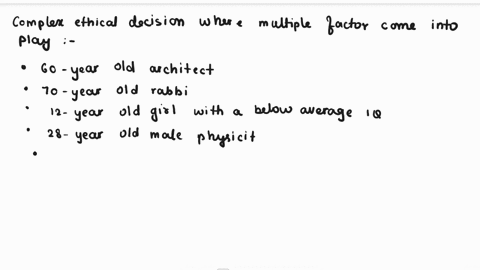 Complex ethical decision where multiple factor come into
play :-
• 60-year old architect
• 70-year old rabbi
• 12-year old girl with a below average IQ
• 28-year old male physicit
•